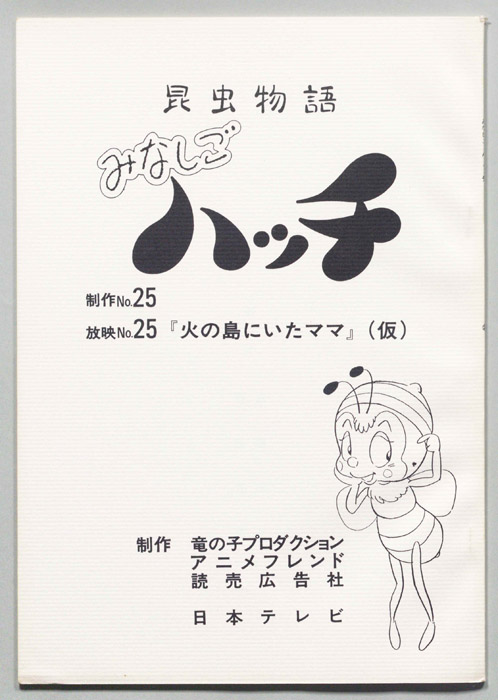 昆虫物語
みなしご
ハッチ
制作No.25
放映No.25『火の島にいたママ』(仮)
制作 竜の子プロダクション
アニメフレンド
読売広告社
日本テレビ